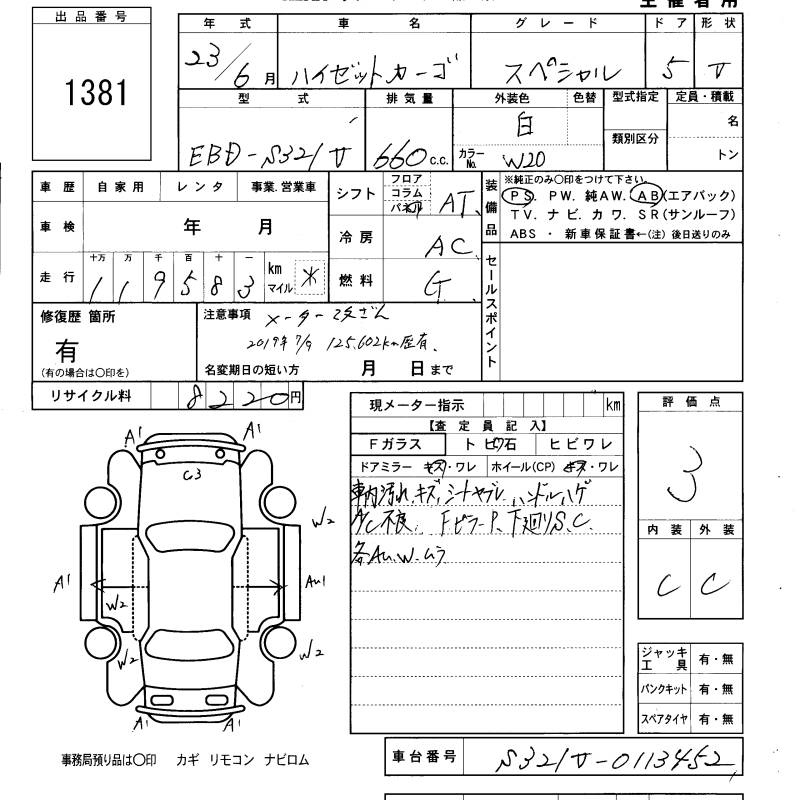 主催者用
出品番号
1381
年式 車名 グレード ドア 形状
23/6月 ハイゼットカーゴ スペシャル 5 V
型式 排気量 外装色 色替 型式指定 定員・積載
EBD-S321V 660 c.c. 白 類別区分 名
カラーNo. W20 トン
車歴 自家用 レンタ 事業.営業車
シフト フロア コラム パネル AT
装備品 ※純正のみ〇印をつけて下さい。
PS. PW. 純AW. AB(エアバック)
TV. ナビ. カワ. SR(サンルーフ)
ABS ・ 新車保証書←(注) 後日送りのみ
車検 年 月
冷房 AC
走行 十万 万 千 百 十 一
119583 km マイル *
燃料 G
セールスポイント
修復歴 箇所
有
(有の場合は〇印を)
注意事項 メーター改ざん
2019年7/9 125,602km歴有.
名変期日の短い方 月 日まで
リサイクル料 8220円
現メーター指示 km
【査定員記入】
Fガラス トビ石 ヒビワレ
ドアミラー キズ・ワレ ホイール(CP) キズ・ワレ
車内汚れ、キズ、シートヤブレ、ハンドルハゲ
A/C不良、FピラーP、下廻りS.C.
各AU.W.ムラ
評価点
3
内装 外装
C C
A1 A1
C3
W2
A1 W2 AU1
W2 W2
A1 A1
ジャッキ工具 有・無
パンクキット 有・無
スペアタイヤ 有・無
事務局預り品は〇印 カギ リモコン ナビロム
車台番号 S321V-0113452